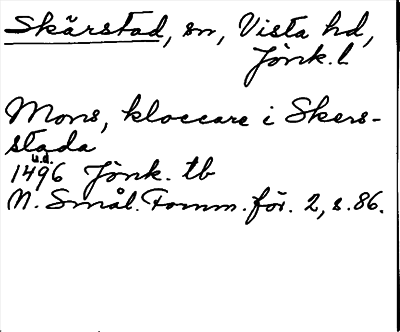 Skärstad, sn, Vista hd,
Jönk. l
Mons, kloccare i Skers-
stada
u.d.
1496 Jönk. tb
N. Smål. Fornm. för. 2, s. 86.